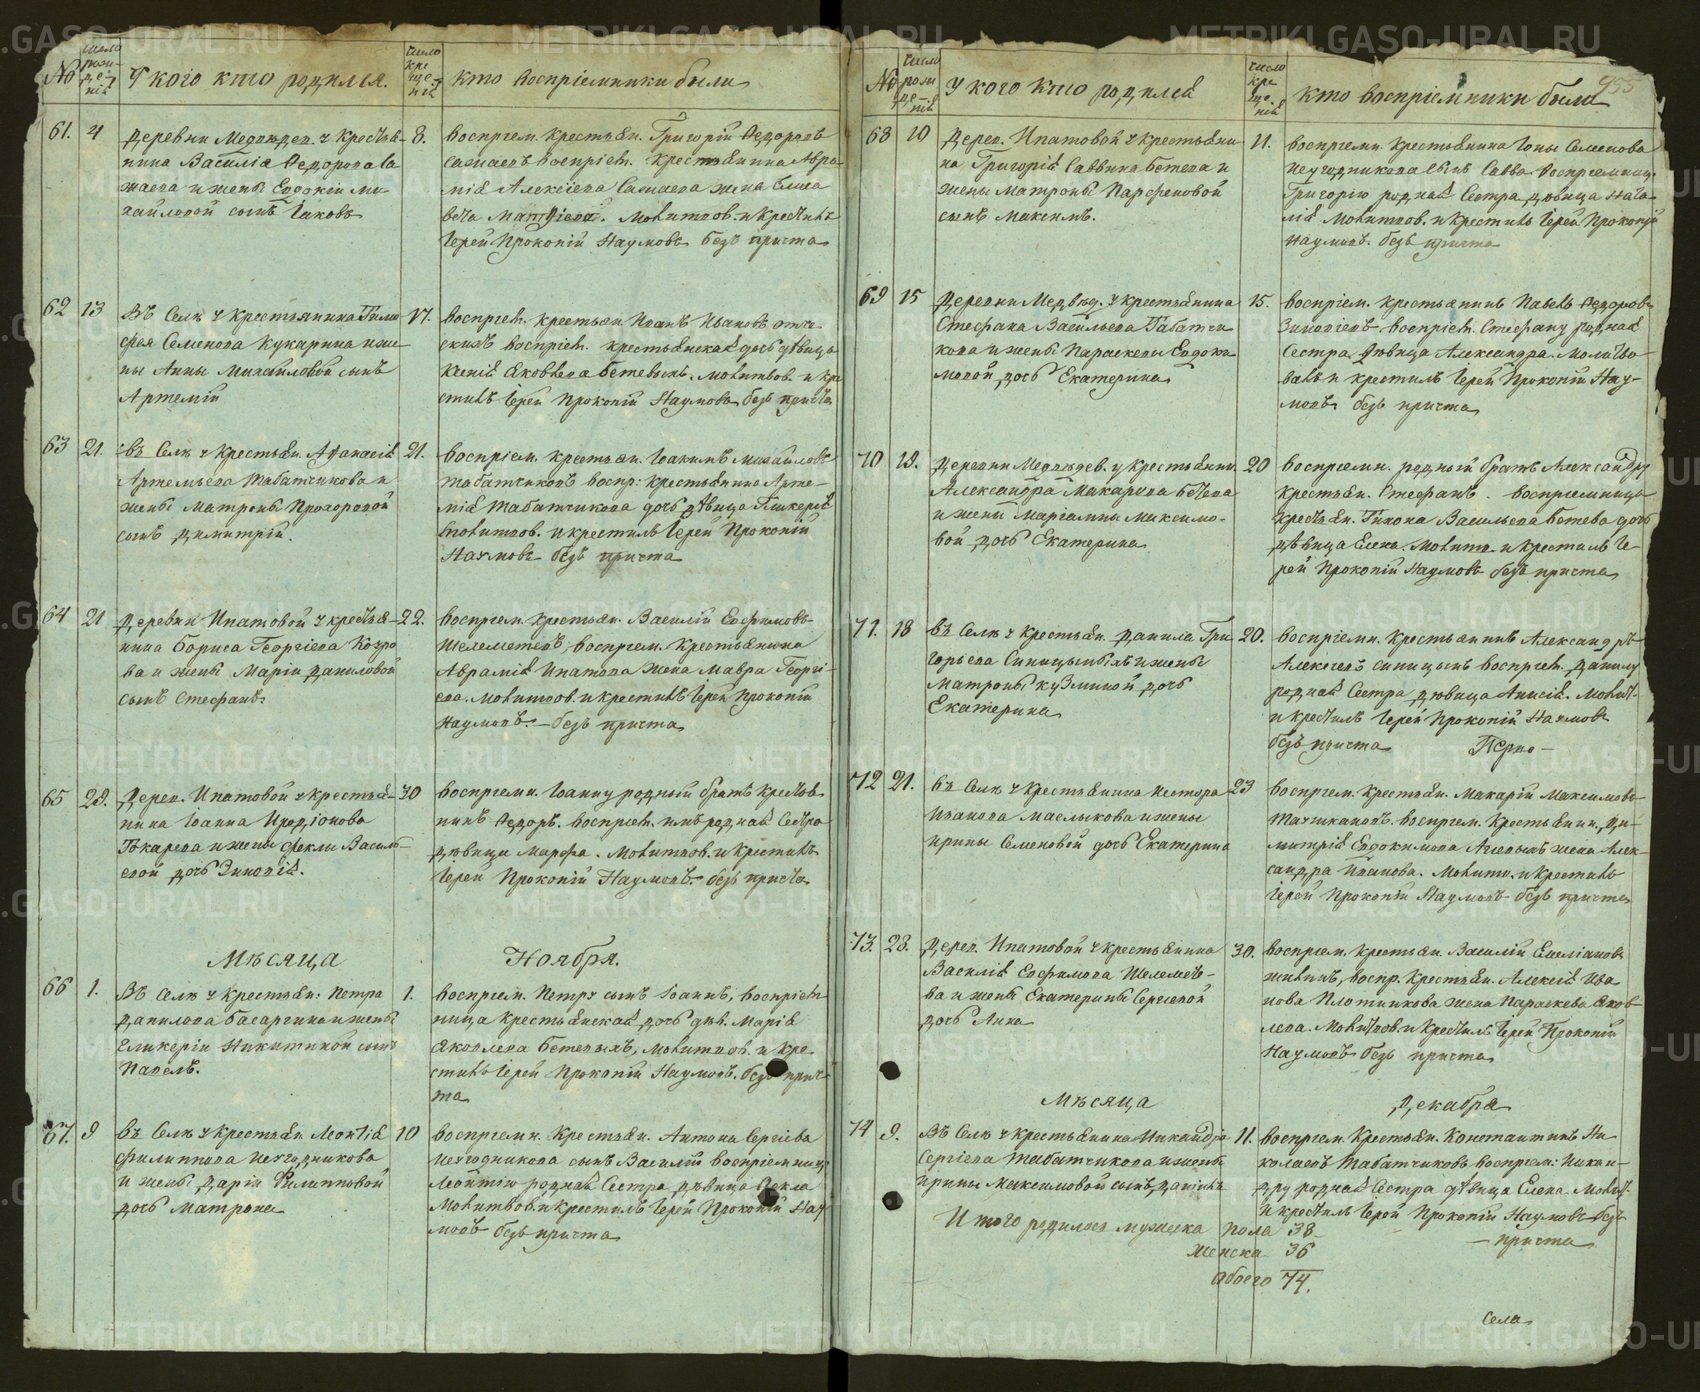 № число рожденій У кого кто родился. число крещеній кто воспріемники были
61. 4 Деревни Медвѣдев. у крестья-
нина Василія Федорова Са
маева и жены Евдокіи Ми
хайловой сынъ Іаковъ
8. воспріем. крестьян. Григорій Федоровъ
Самаевъ воспріем. крестьянина Авра
мія Алексіева Самаева жена Елиса
вета Матфіева. Молитвов. и крестилъ
Іерей Прокопій Наумовъ безъ причта
62 13 Въ Селѣ у крестьянина Тимо
фея Семенова Кукарина и же
ны Анны Михайловой сынъ
Артемій
17. воспріем. крестьян Иванъ Ивановъ
воспріем. крестьянская дочь дѣвица
Ксенія Яковлева Бетевыхъ. Молитвов. и кре
стилъ Іерей Прокопій Наумовъ безъ причта
63 21. въ Селѣ у крестьян. Афанасія
Артемьева Табатчикова и
жены Матроны Прохоровой
сынъ Димитрій.
21. воспріем. крестьян. Іоакимъ Михайловъ
Табатчиковъ воспр: крестьянина Арте-
мія Табатчикова дочь дѣвица Гликерія
молитвов. и крестилъ Іерей Прокопій
Наумовъ безъ причта
64 21 Деревни Ипатовой у крестья-
нина Бориса Георгіева
ва и жены Маріи Даниловой
сынъ Стефанъ.
22. воспріем. крестьян. Василій Евфимовъ
Шелеметевъ, воспріем. крестьянина
Аврамія Ипатова жена Мавра Георгі-
ева. Молитвов. и крестилъ Іерей Прокопій
Наумовъ. безъ причта
65 29. Дерев. Ипатовой у крестья-
нина Іоанна Иродіонова
Токарева и жены Феклы Василь-
евой дочь Зиновія.
30 воспріемн. Іоанну родный братъ крестья
нинъ Федоръ. воспріем. имъ родная Сестра
дѣвица Марфа. Молитвов. и крестилъ
Іерей Прокопій Наумовъ. безъ причта
Мѣсяца Ноября.
66 1. Въ Селѣ у крестьян: Петра
Данилова Басаргина и жены
Гликеріи Никитиной сынъ
Павелъ.
1. воспріем. Петру сынъ Іоаннъ, воспріем
ница крестьянская дочь дѣв. Марія
Яковлева Бетевыхъ, молитвов. и кре
стилъ Іерей Прокопій Наумовъ. безъ прич
та
67. 9 въ Селѣ у крестьян. Леонтія
Филиппова Неугодникова
и жены Даріи Филипповой
дочь Матрона
10 воспріемн. Крестьян. Антона Сергіева
Неугодникова сынъ Василій воспріемниц.
Леонтію родная Сестра дѣвица Фекла
Молитвов. и крестилъ Іерей Прокопій Нау
мовъ безъ причта
955
№ число рожденій У кого кто родился число крещеній кто воспріемники были
68 10 Дерев. Ипатовой у крестьяни
на Григорія Саввина Бетева и
жены Матроны Парфеновой
сынъ Максимъ.
11. воспріемн. крестьянина Іоны Семенова
Неугодникова сынъ Савва воспріемниц.
Григорію родная Сестра дѣвица Ната
лія Молитвов. и крестилъ Іерей Прокопій
Наумовъ. безъ причта
69 15 Деревни Медвѣд. у крестьянина
Стефана Васильева Табатчи
кова и жены Параскевы Евдоки
мовой дочь Екатерина
15. воспріем. крестьянинъ Павелъ Федоровъ
Зиновіевъ воспріем. Стефану родная
Сестра дѣвица Александра. Молитво-
валъ и крестилъ Іерей Прокопій Нау-
мовъ безъ причта
70 18. Деревни Медвѣдев. у крестьянин.
Александра Макарова Бетева
и жены Маріамны Максимо-
вой дочь Екатерина
20 воспріемн. родный братъ Александру
крестьян. Стефанъ. воспріемница
крестьян. Тихона Васильева Бетева дочь
дѣвица Елена. Молитв. и крестилъ Іе-
рей Прокопій Наумовъ безъ причта
71. 18 въ Селѣ у крестьян. Данила Гри
горьева Синицыныхъ и жены
Матроны Кузминой дочь
Екатерина
20. воспріемн. крестьянинъ Александръ
Алексіевъ Синицынъ воспріем. Данилу
родная Сестра дѣвица Анисія. Молит.
и крестилъ Іерей Прокопій Наумовъ
безъ причта
72 21. въ Селѣ у крестьянина Нестора
Иванова Маслыкова и жены
Ирины Семеновой дочь Екатерина
23 воспріем. крестьян. Макарій Максимовъ
воспріем. крестьянин. Ди-
митрія Евдокимова жена Алек-
сандра Иванова. Молитв. и крестилъ
Іерей Прокопій Наумовъ безъ причта
73. 28. Дерев. Ипатовой у крестьянина
Василія Евфимова Шелеметь-
ва и жены Екатерины Сергіевой
дочь Анна
30. воспріем. крестьян. Василій Емеліановъ
воспр. Крестьян. Алексія Ива
нова Плотникова жена Параскева Яков
лева. Молитвов. и крестилъ Іерей Прокопій
Наумовъ безъ причта
Мѣсяца Декабря
74 9. Въ Селѣ у крестьянина Никандра
Сергіева Табатчикова и жены
Ирины Максимовой сынъ Даніилъ
11. воспріем. Крестьян. Константинъ Ни
колаевъ Табатчиковъ воспріем: Никан-
дру родная Сестра дѣвица Елена. Молит.
и крестилъ Іерей Прокопій Наумовъ безъ
причта
Итого родилося мужеска пола 38
женска 36
обоего 74.
Села